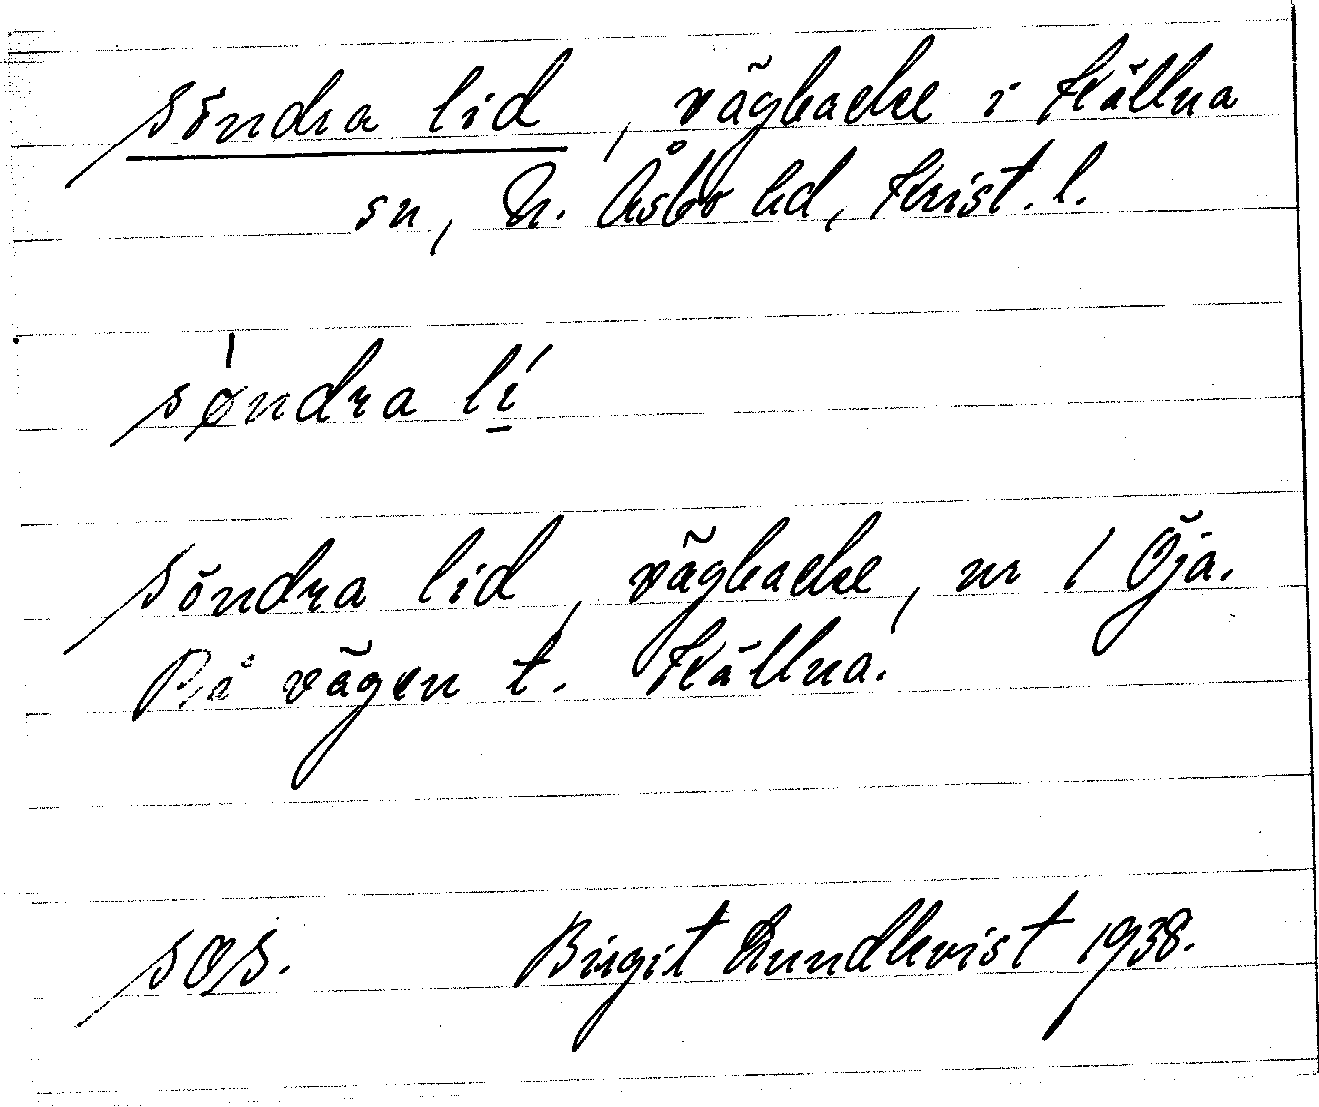 Söndra lid, vägbacke i Källna
sn, N. Åsbo hd, Krist. l.
søndra lí
Söndra lid, vägbacke, nr 1 Öja.
På vägen t. Källna.
SOS. Birgit Lundkvist 1938.